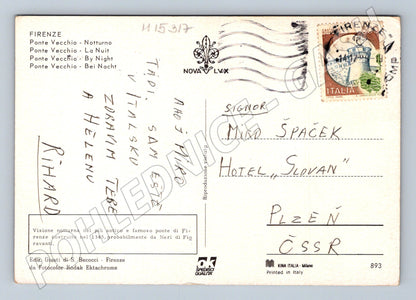 H15317
FIRENZE
Ponte Vecchio - Notturno
Ponte Vecchio - La Nuit
Ponte Vecchio - By Night
Ponte Vecchio - Bei Nacht
NOVA LUX
FIRENZE
ITALIA
AHOJ MIRO
TADY SAM JEŠTĚ
V ITALSKU
ZDRAVÍM TEBE
A HELENU
RIHARD
SIGNOR
MIRO ŠPAČEK
HOTEL „SLOVAN"
PLZEŇ
ČSSR
Riproduzione vietata
Visione notturna del più antico e famoso ponte di Fi-
renze costruito nel 1345 probabilmente da Neri di Fio-
ravanti.
Ediz. Giusti di S. Becocci - Firenze
da Fotocolor Kodak Ektachrome
OK
SPECIMEN
QUALITÀ
KINA ITALIA - Milano
Printed in Italy
893
POHLEDNICE-